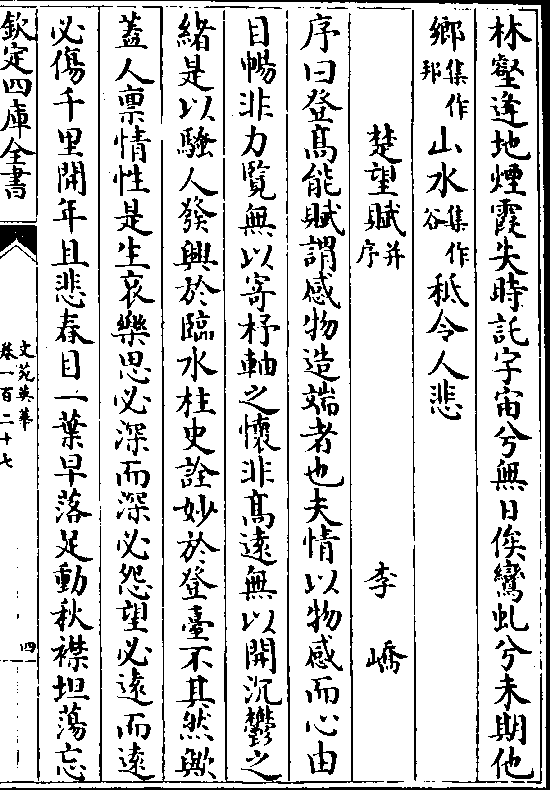 林壑逢地煙霞失時託字宙兮無日俟鸞虬兮未期他
鄉集作邦山水集作谷秪令人悲
楚望賦并序 李嶠
序曰登髙能賦謂感物造端者也夫情以物感而心由
目暢非力覽無以寄杼軸之懷非髙遠無以開沉鬱之
緒是以騷人發興於臨水柱史詮妙於登臺不其然歟
蓋人禀情性是生哀樂思必深而深必怨望必遠而遠
必傷千里開年且悲春目一葉早落足動秋襟坦蕩忘
欽定四庫全書
文苑英華
卷一百二十七
四